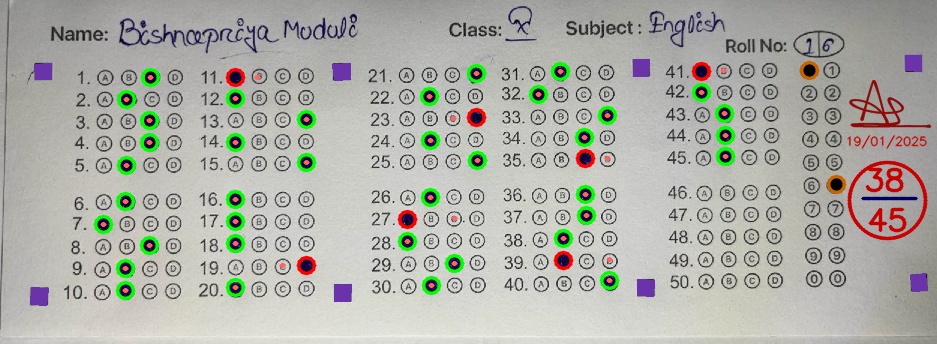 Name: Bishnupriya Muduli Class: X Subject: English
Roll No: 16
1. A B D
2. A C D
3. A B D
4. A B D
5. A C D
6. A C D
7. B C D
8. A B D
9. A C D
10. A C D
11. B C D
12. B C D
13. A B C
14. B C D
15. A B C
16. B C D
17. B C D
18. B C D
19. A B C
20. B C D
21. A B C
22. A C D
23. A B C
24. A C D
25. A B C
26. A C D
27. B C D
28. B C D
29. A B D
30. A C D
31. A C D
32. B C D
33. A B C
34. A B D
35. A B D
36. A B D
37. A B D
38. A C D
39. A C D
40. A B C
41. B C D
42. B C D
43. A C D
44. A C D
45. A C D
46. A B C D
47. A B C D
48. A B C D
49. A B C D
50. A B C D
1
2 2
3 3
4 4
5 5
6
7 7
8 8
9 9
0 0
19/01/2025
38
45